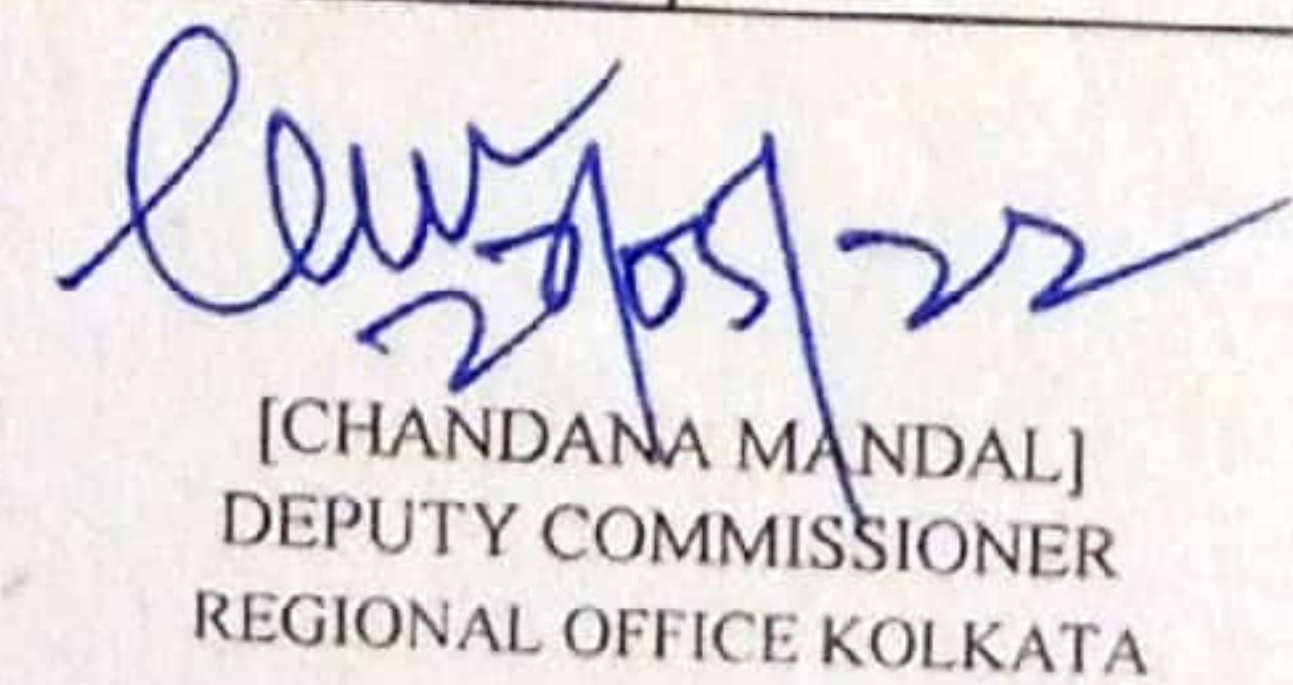 20/05/22
[CHANDANA MANDAL]
DEPUTY COMMISSIONER
REGIONAL OFFICE KOLKATA